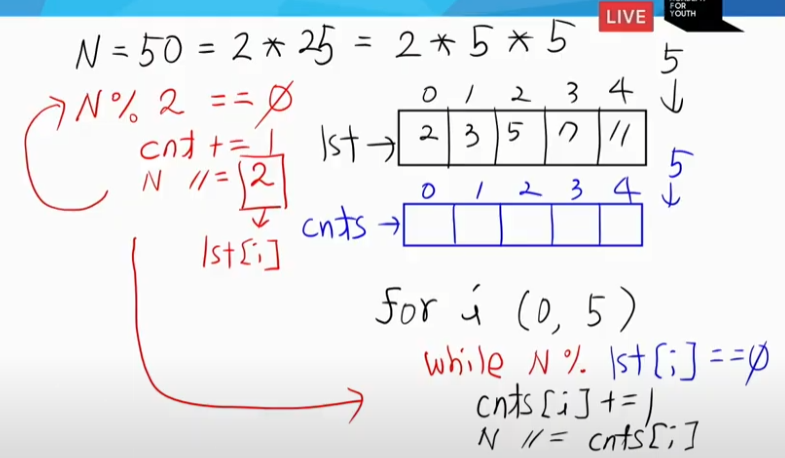 LIVE
FOR
YOUTH
N = 50 = 2 * 25 = 2 * 5 * 5
N % 2 == 0
cnt += 1
N //= 2
lst[i]
5
0 1 2 3 4
lst → 2 3 5 7 11
5
0 1 2 3 4
cnts →
for i (0, 5)
while N % lst[i] == 0
cnts[i] += 1
N //= cnts[i]